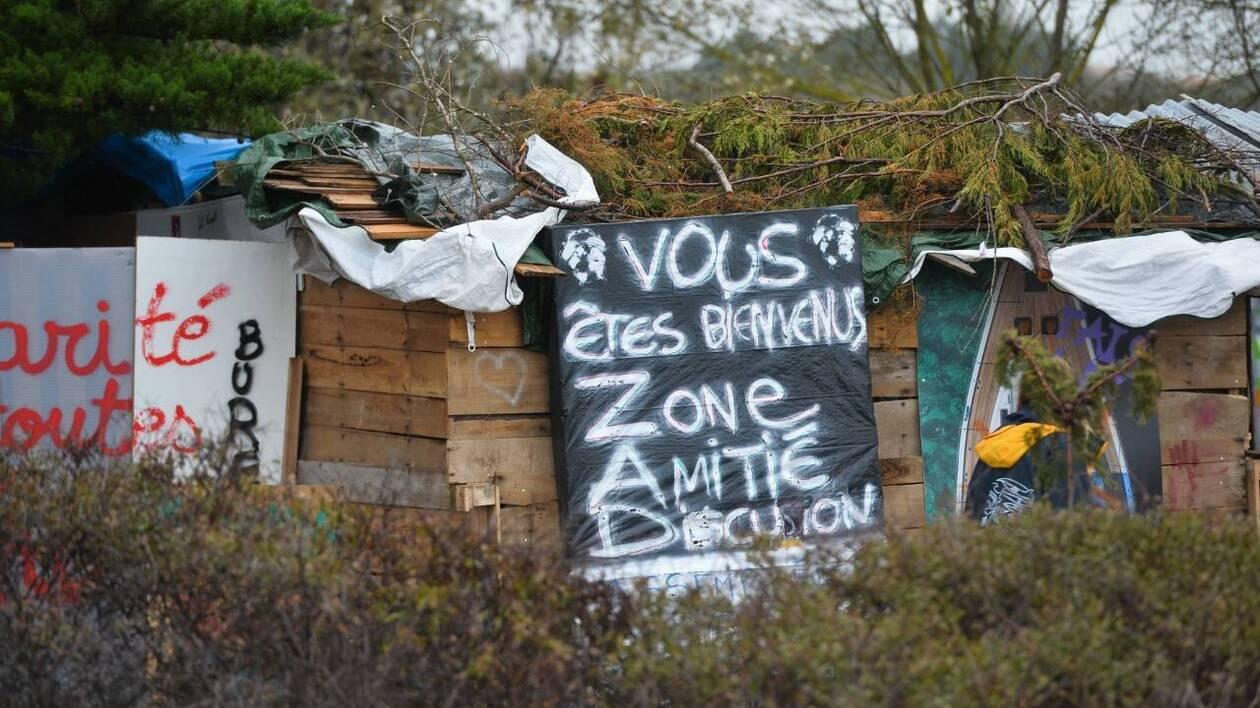 arité
toutes
BURE
VOUS
ÊTES BIENVENUS
ZONE
AMITIÉ
DISCUSSION